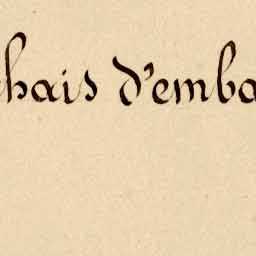 hais d'emba